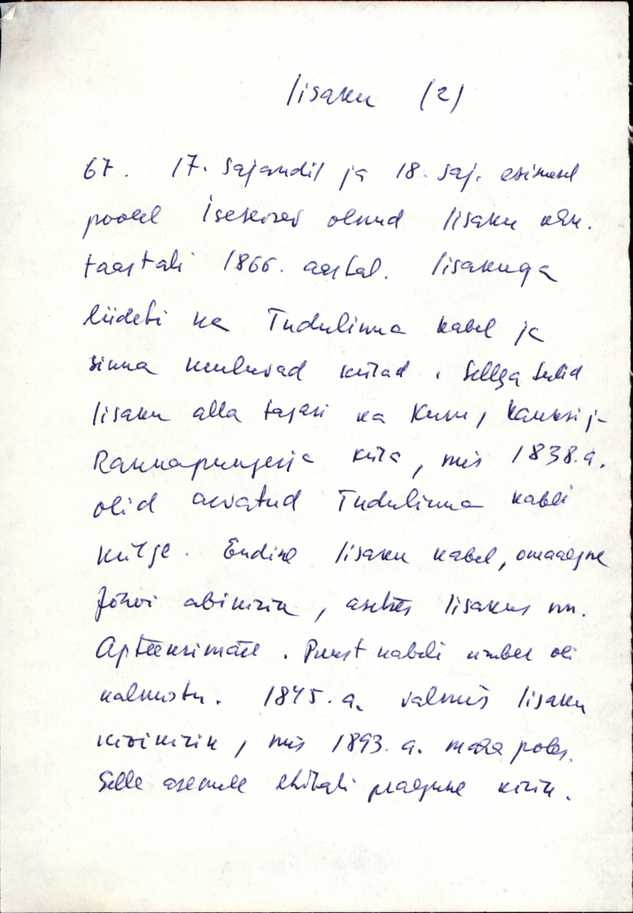 Iisaku (2)
67. 17. sajandil ja 18. saj. esimesel
poolel iseseisev olnud Iisaku khk.
taastati 1866. aastal. Iisakuga
liideti ka Tudulinna kabel ja
sinna kuuluvad külad. Sellega tulid
Iisaku alla tagasi ka Kuru, Kauksi ja
Rannapungerja küla, mis 1838. a.
olid arvatud Tudulinna kabeli
külge. Endine Iisaku kabel, omaaegne
Jõhvi abikirik, asetses Iisakus nn.
Apteekrimäel. Puust kabeli ümber oli
kalmistu. 1845. a. valmis Iisaku
kivikirik, mis 1893. a. maha põles.
Selle asemele ehitati praegune kirik.